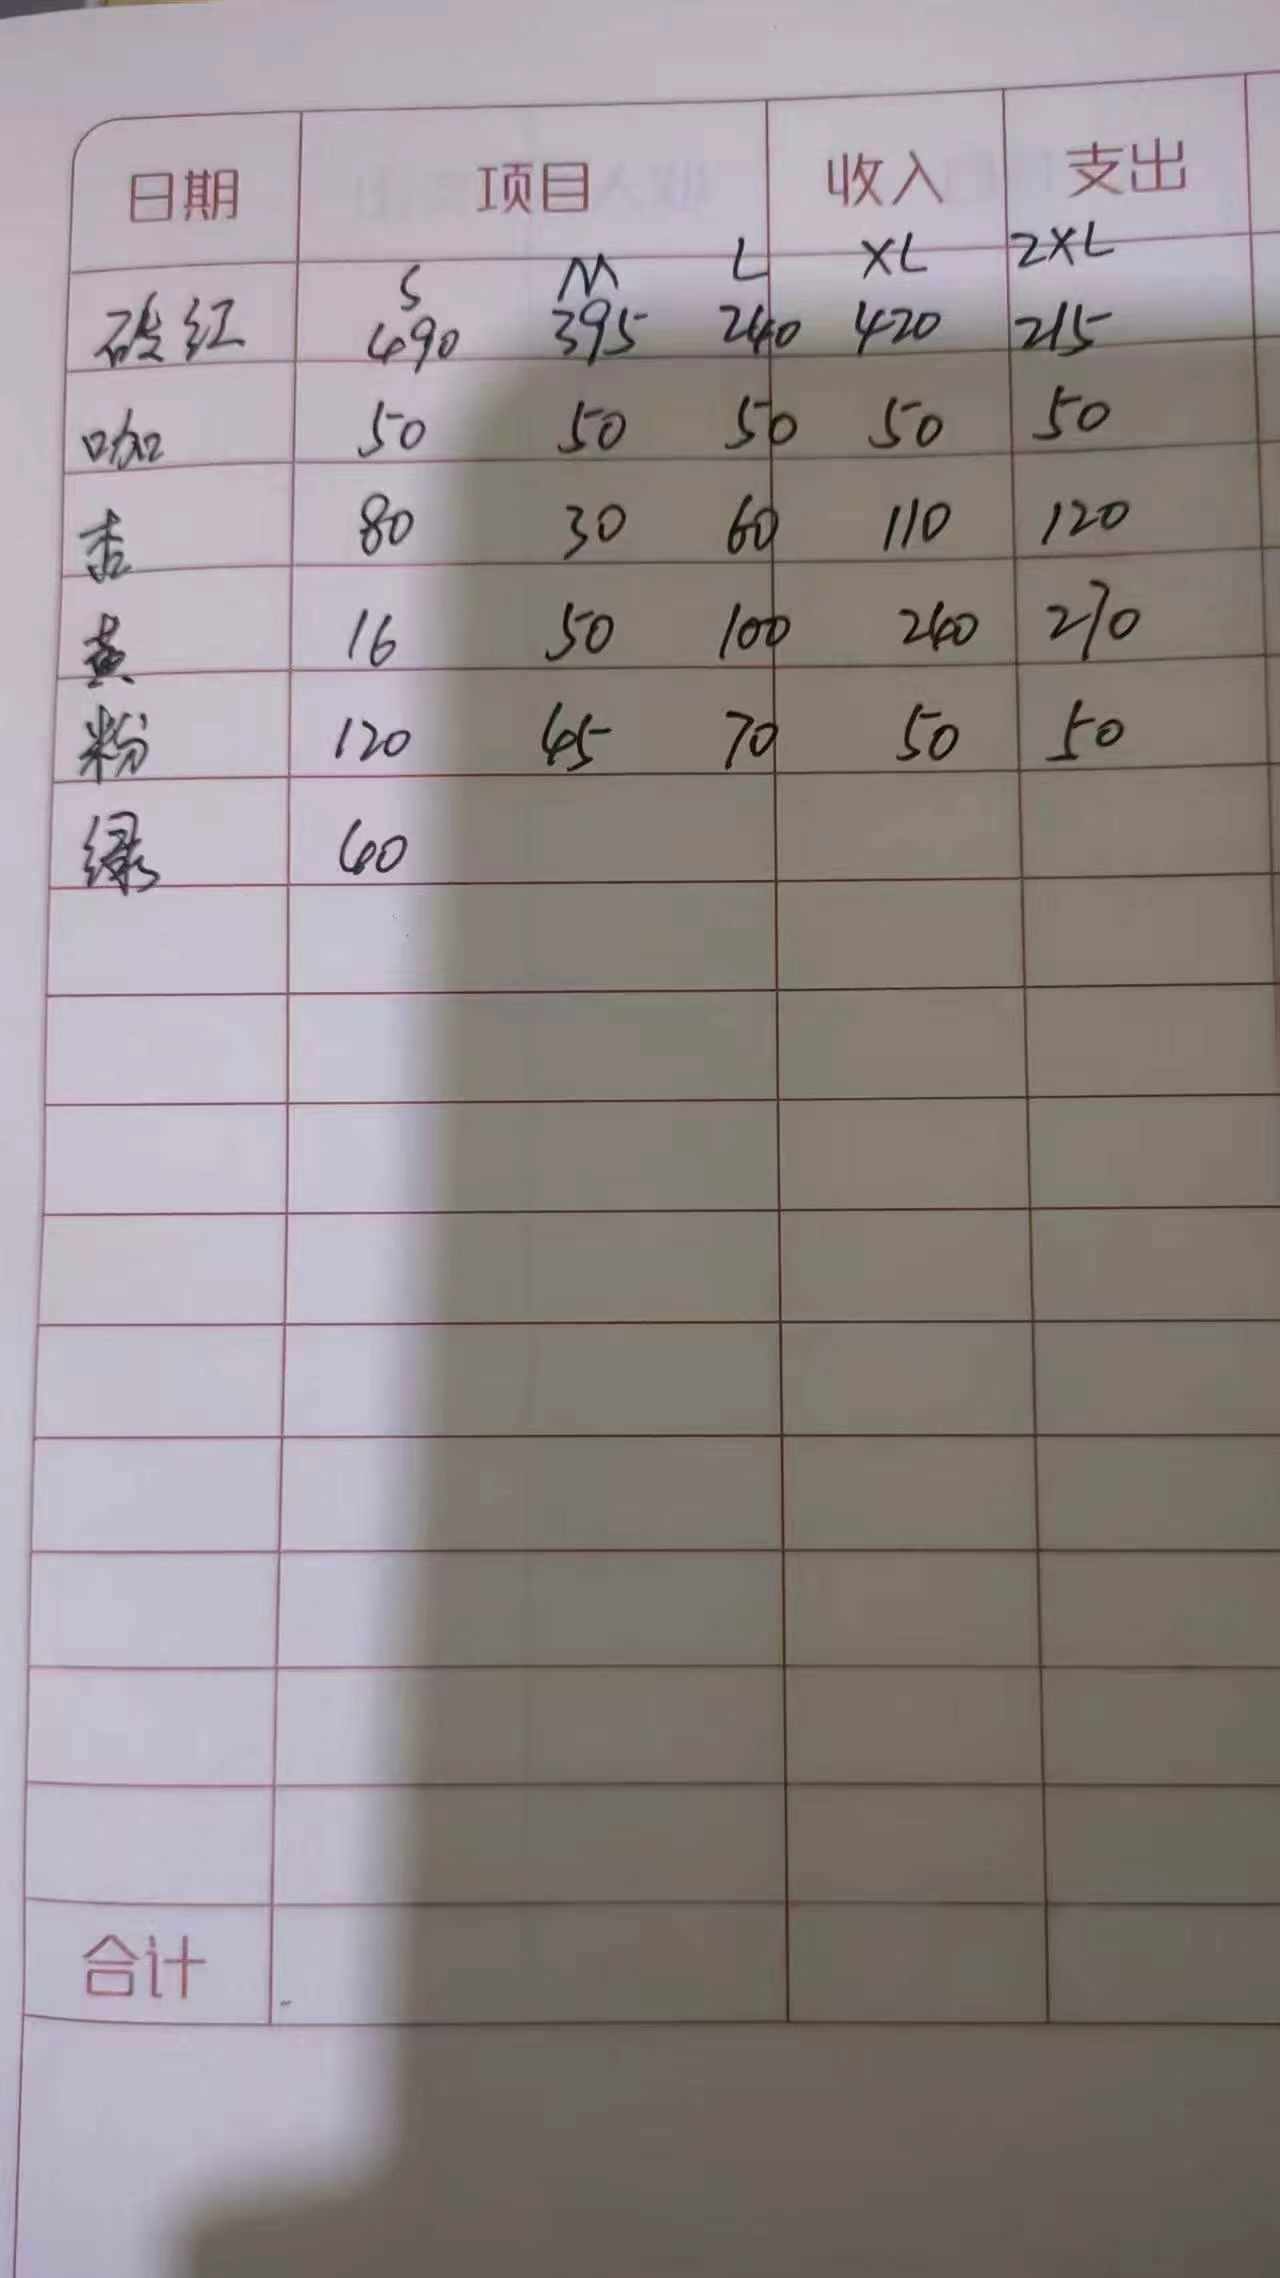 日期 项目 收入 支出
S M L XL 2XL
砖红 490 395 240 420 215
咖 50 50 50 50 50
杏 80 30 60 110 120
黄 16 50 100 240 270
粉 120 45 70 50 50
绿 60
合计